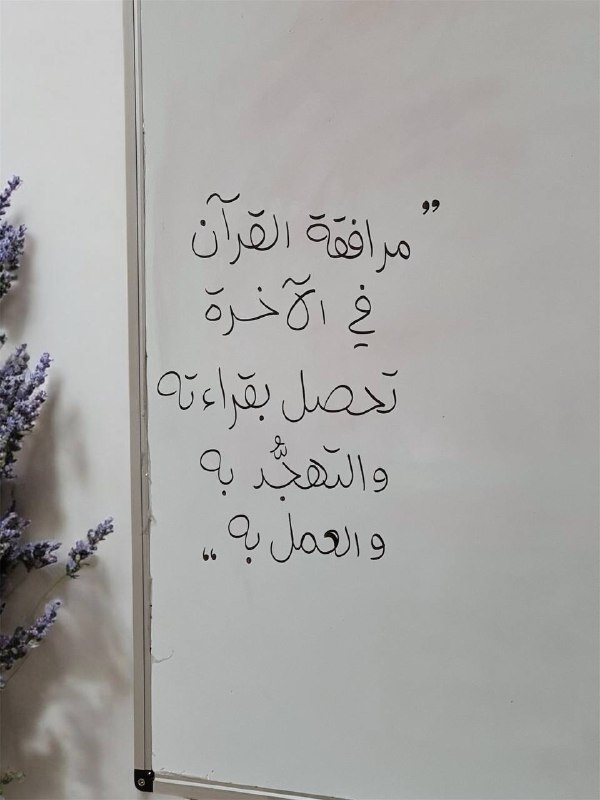 ”مرافقة القرآن
في الآخرة
تحصل بقراءته
والتهجُّد به
والعمل به“